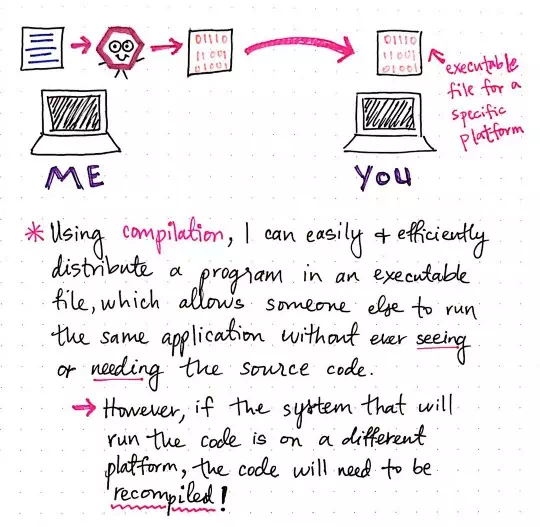 01110
11001
01001
01110
11001
01001
executable
file for a
specific
platform
ME
YOU
* Using compilation, I can easily + efficiently
distribute a program in an executable
file, which allows someone else to run
the same application without ever seeing
or needing the source code.
→ However, if the system that will
run the code is on a different
platform, the code will need to be
recompiled!